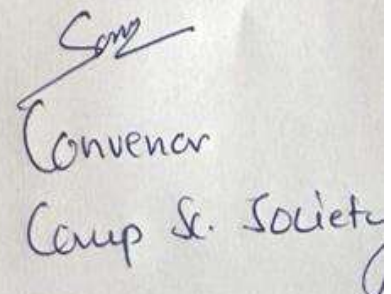 Convenor
Comp Sc. Society